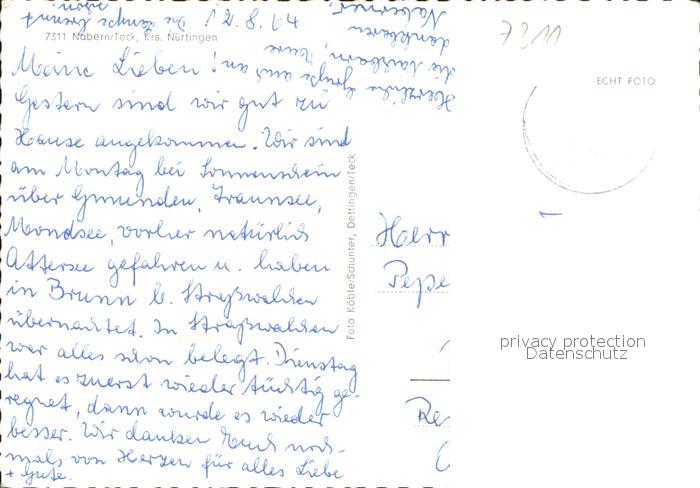 7311
7311 Nabern/Teck, Krs. Nürtingen
ECHT FOTO
Meine Lieben!
Gestern sind wir gut zu
Hause angekommen. Wir sind
am Montag bei Sonnenschein
über Gmunden, Traunsee,
Mondsee, vorher natürlich
Attersee gefahren u. haben
in Brunn b. Straßwalchen
übernachtet. In Straßwalchen
war alles schon belegt. Dienstag
hat es zuerst wieder tüchtig ge-
regnet, dann wurde es wieder
besser. Wir danken Euch noch-
mals von Herzen für alles Liebe
+ Gute.
Herzliche Grüße aus an
die Nachbarn,
dankbaren
Naberner
Foto Köble/Schunter, Dettingen/Teck
Herr
Pepe
Re
privacy protection
Datenschutz